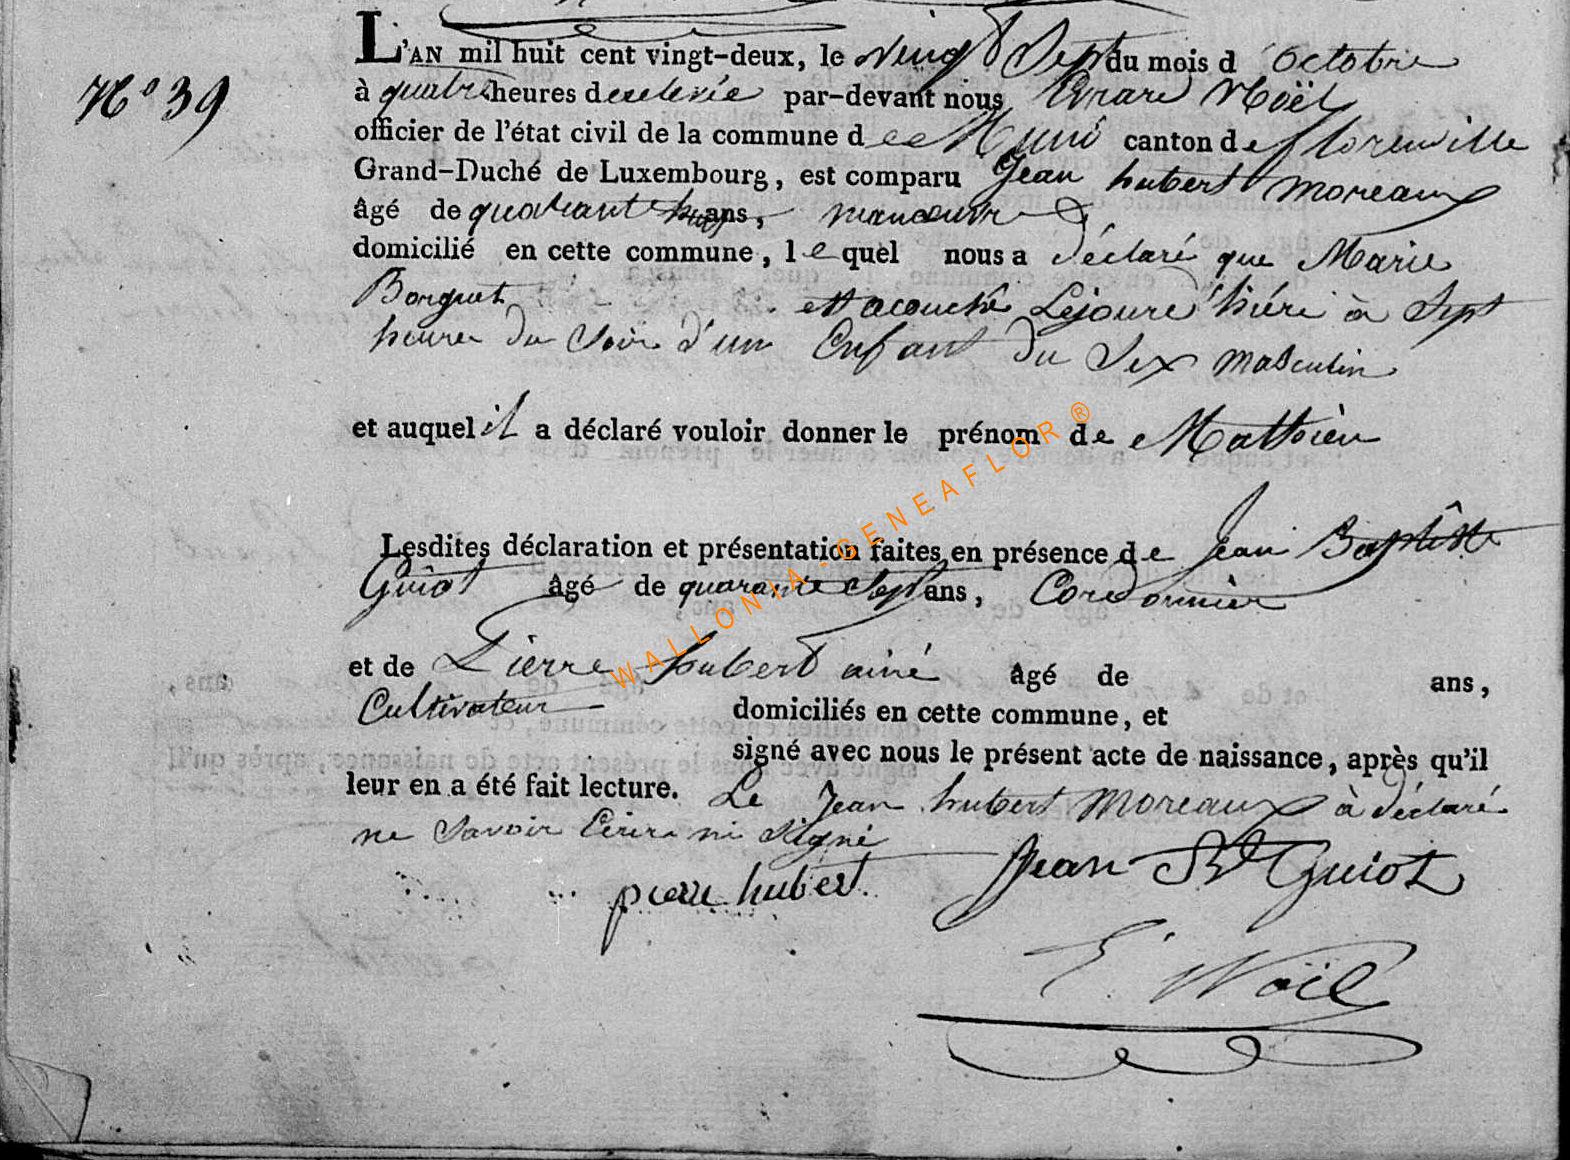 N° 39
L'AN mil huit cent vingt-deux, le vingt Sept du mois d'octobre
à quatre heures de relevée par-devant nous Evrard Noël
officier de l'état civil de la commune de Muno canton de florenville
Grand-Duché de Luxembourg, est comparu Jean hubert moreaux
âgé de quarante huit ans, manœuvre
domicilié en cette commune, lequel nous a déclaré que Marie
Borguet est acouché Lejoure d'hiéri à Sept
heures du Soir d'un Enfant du Sex masculin
et auquel il a déclaré vouloir donner le prénom de Mathieu
Lesdites déclaration et présentation faites en présence de Jean Baptiste
Guiot âgé de quarante Sept ans, Cordonnier
et de Pierre hubert ainé âgé de ans,
Cultivateur domiciliés en cette commune, et
signé avec nous le présent acte de naissance, après qu'il
leur en a été fait lecture. Le Jean hubert moreaux à déclaré
ne Savoir Ecrire ni Signé
pierre hubert Jean Bte Guiot
E. Noël
WALLONIA-GENEAFLOR®